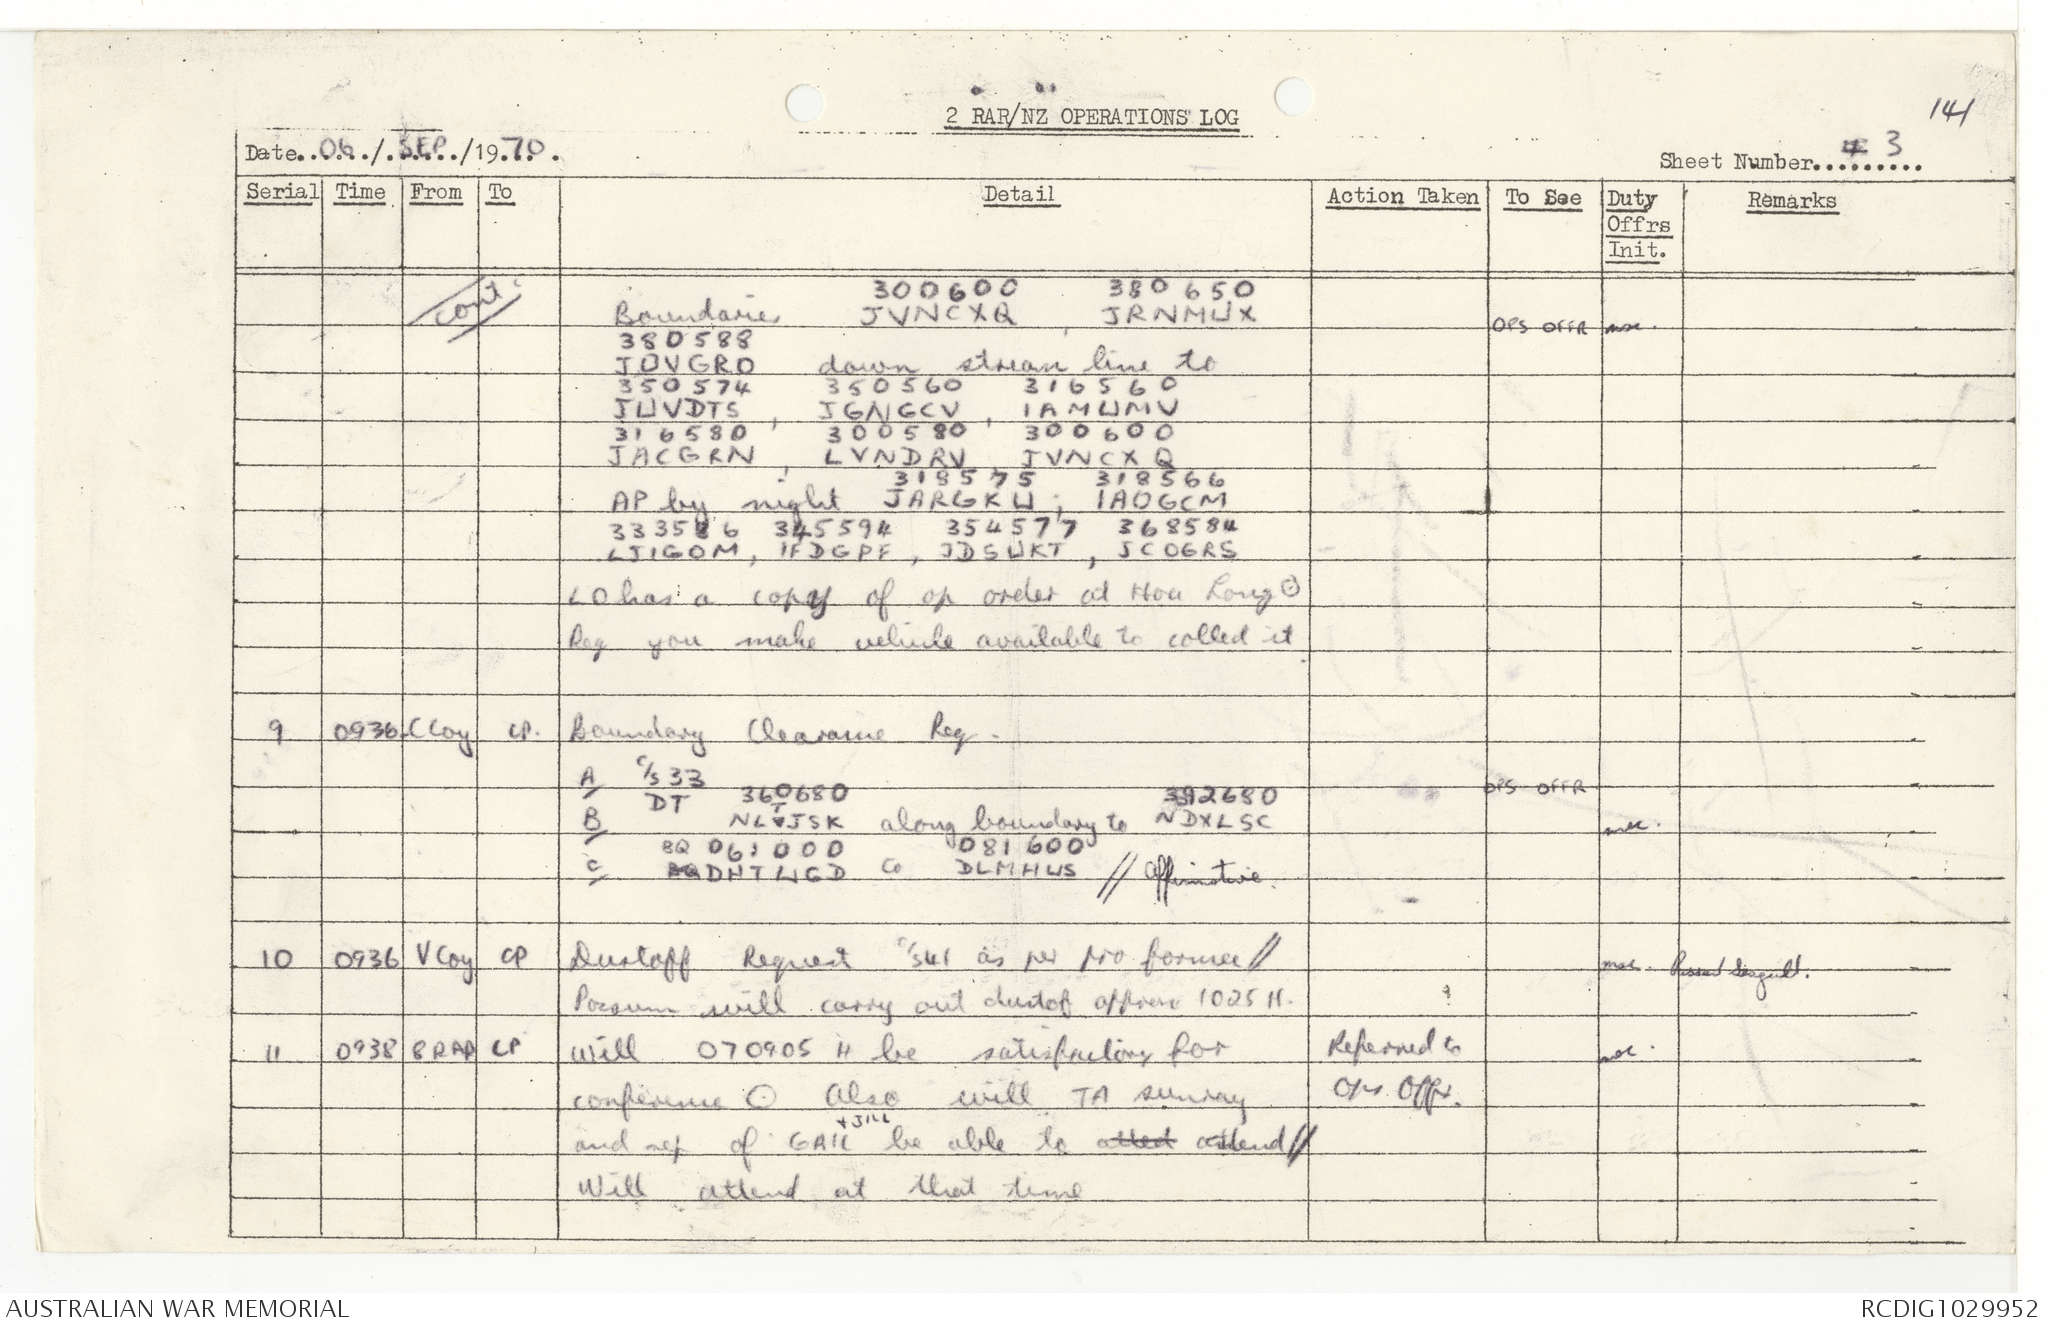 141
2 RAR/NZ OPERATIONS LOG
Date..06../.SEP../1970.
Sheet Number... 3
Serial Time From To Detail Action Taken To See Duty Offrs Init. Remarks
cont.
300600 380650
Boundaries JVNCXQ, JRNMUX
OPS OFFR
380588
JOVGRO down stream line to
350574 350560 316560
JUVDTS, JGNGCV, IAMUMV
316580 300580 300600
JACGRN, LVNDRV, JVNCXQ
318575 318566
AP by night JARGKU; IAOGCM
333586 345594 354577 368584
LJIGOM, IFDGPF, JDSUKT, JCOGRS
LO has a copy of op order at Hoa Long ⊙
Req you make vehicle available to colled it.
9 0936 C Coy CP. Boundary Clearance Req.
A C/S 33
OPS OFFR
DT 360680 392680
B NLTJSK along boundary to NDXLSC
BQ 061000 081600
C DNTUGD to DLMHUS // Affirmative.
10 0936 V Coy CP Dustoff Request C/S 41 as per pro former //
Possum will carry out dustof approx 1025 H.
11 0938 8 RAR CP Will 070905 H be satisfactory for Referred to
conference ⊙ Also will TA sunray Ops Offr.
+ JILL
and rep of GAIL be able to atted attend //
Will attend at that time
AUSTRALIAN WAR MEMORIAL
RCDIG1029952